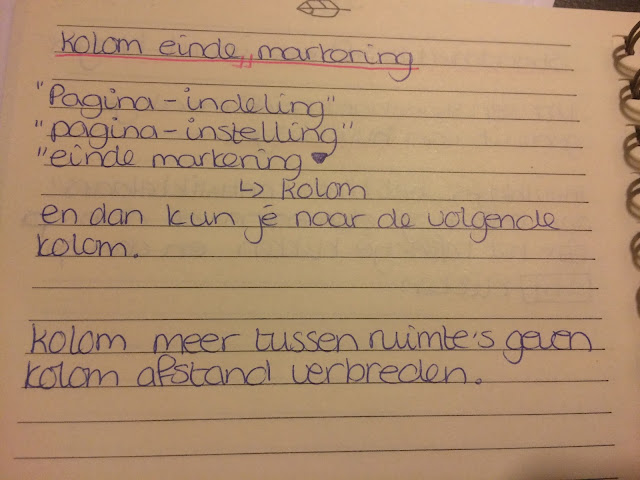 Kolom einde markering
"Pagina-indeling"
"pagina-instelling"
"einde markering
↳ Kolom
en dan kun je naar de volgende
kolom.
Kolom meer tussen ruimte's geven
Kolom afstand verbreden.